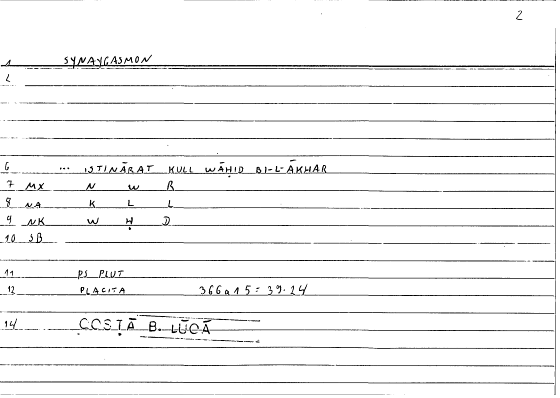 2
1 SYNAYGASMON
2
6 ... ISTINĀRAT KULL WĀḤID BI-L-ĀKHAR
7 MX N W R
8 NA K L L
9 NK W Ḥ D
10 SB
11 PS PLUT
12 PLACITA 366a15 = 39.24
14 COSṬĀ B. LŪQĀ